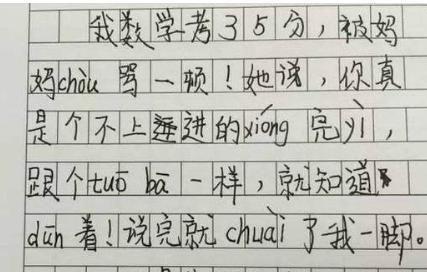 我数学考35分，被妈
妈chòu骂一顿！她说，你真
是个不上进的xióng完yì，
跟个tuō bā一样，就知道
dūn着！说完就chuài了我一脚。